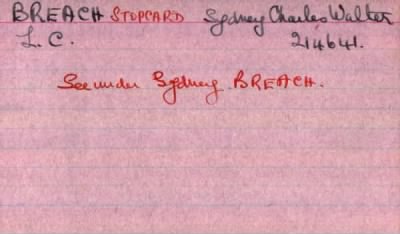 BREACH STOPCARD Sydney Charles Walter
L. C. 214641.
See under Sydney BREACH.